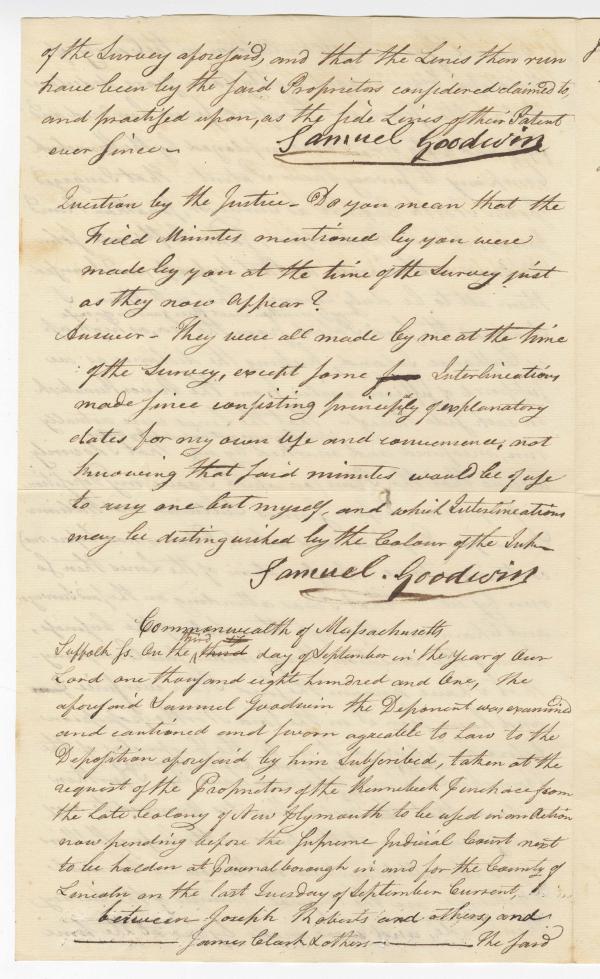 of the Survey aforesaid, and that the Lines then run
have been by the said Proprietors considered claimed to,
and practised upon, as the side Lines of their Patent
ever since –
Samuel Goodwin
Question by the Justice – Do you mean that the
Field Minutes mentioned by you were
made by you at the time of the Survey just
as they now appear?
Answer – They were all made by me at the time
of the Survey, except some Interlineations
made since consisting principly of explanatory
dates for my own use and convenience, not
knowing that said minutes would be of use
to any one but myself, and which Interlineations
may be distinguished by the Colour of the Ink –
Samuel. Goodwin
Commonwealth of Massachusetts
third
Suffolk Ss. On the third day of September in the Year of Our
Lord one thousand eight hundred and One, The
aforesaid Samuel Goodwin the Deponent was examined
and cautioned and sworn agreable to Law to the
Deposition aforesaid by him Subscribed, taken at the
request of the Proprietors of the Kennebeck Purchace from
the Late Colony of New Plymouth to be used in an Action
now pending before the Supreme Judicial Court next
to be holden at Pownalborough in and for the County of
Lincoln on the last Tuesday of September Current,
between Joseph Roberts and others, and
James Clark & others The said